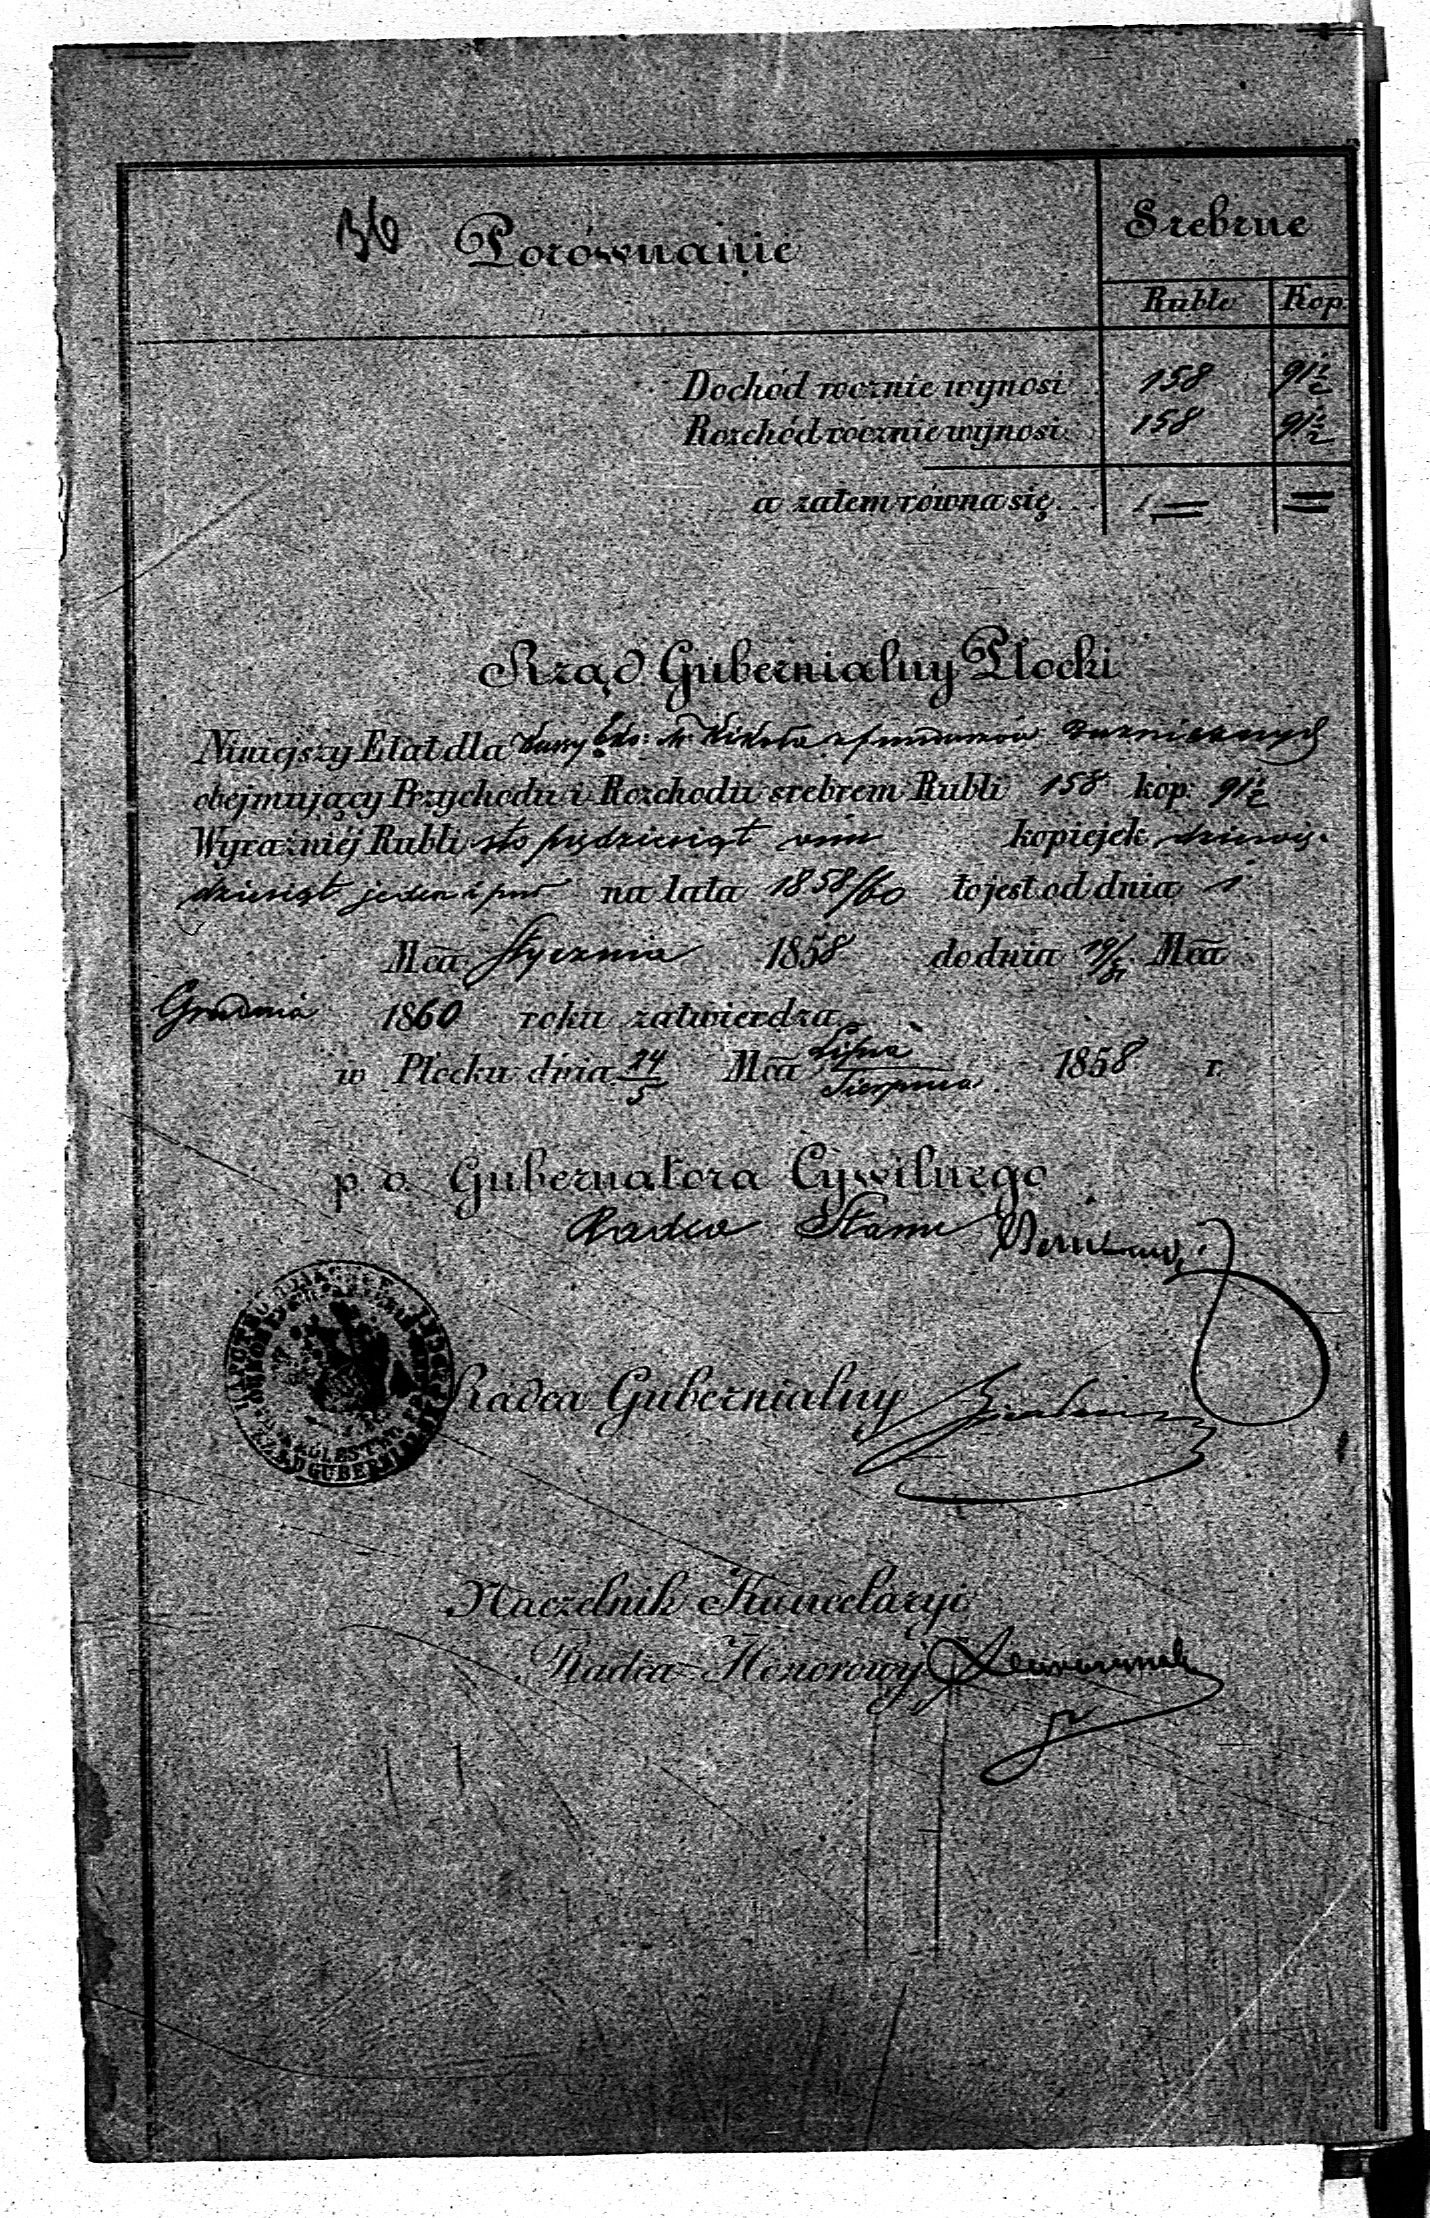 36 Porównanie
Srebrne
Ruble Kop:
Dochód rocznie wynosi 158 91½
Rozchód rocznie wynosi 158 91½
a zatem równa się...
Rząd Gubernialny Płocki
Niniejszy Etat dla Kassy M. Kikoła z funduszów
obejmujący Przychodu i Rozchodu srebrem Rubli 158 kop: 91½
Wyraźniéj Rubli sto pięćdziesiąt ośm kopiejek dziewięć-
dziesiąt jeden i pół na lata 1858/60 to jest od dnia 1
Mca Stycznia 1858 do dnia 19/31 Mca
Grudnia 1860 roku zatwierdza
w Płocku dnia 24/5 Mca Lipca/Sierpnia 1858 r.
p. o. Gubernatora Cywilnego
Radca Stanu
Radca Gubernialny
RZĄD GUBERNIALNY
Naczelnik Kancelaryi
Radca Honorowy